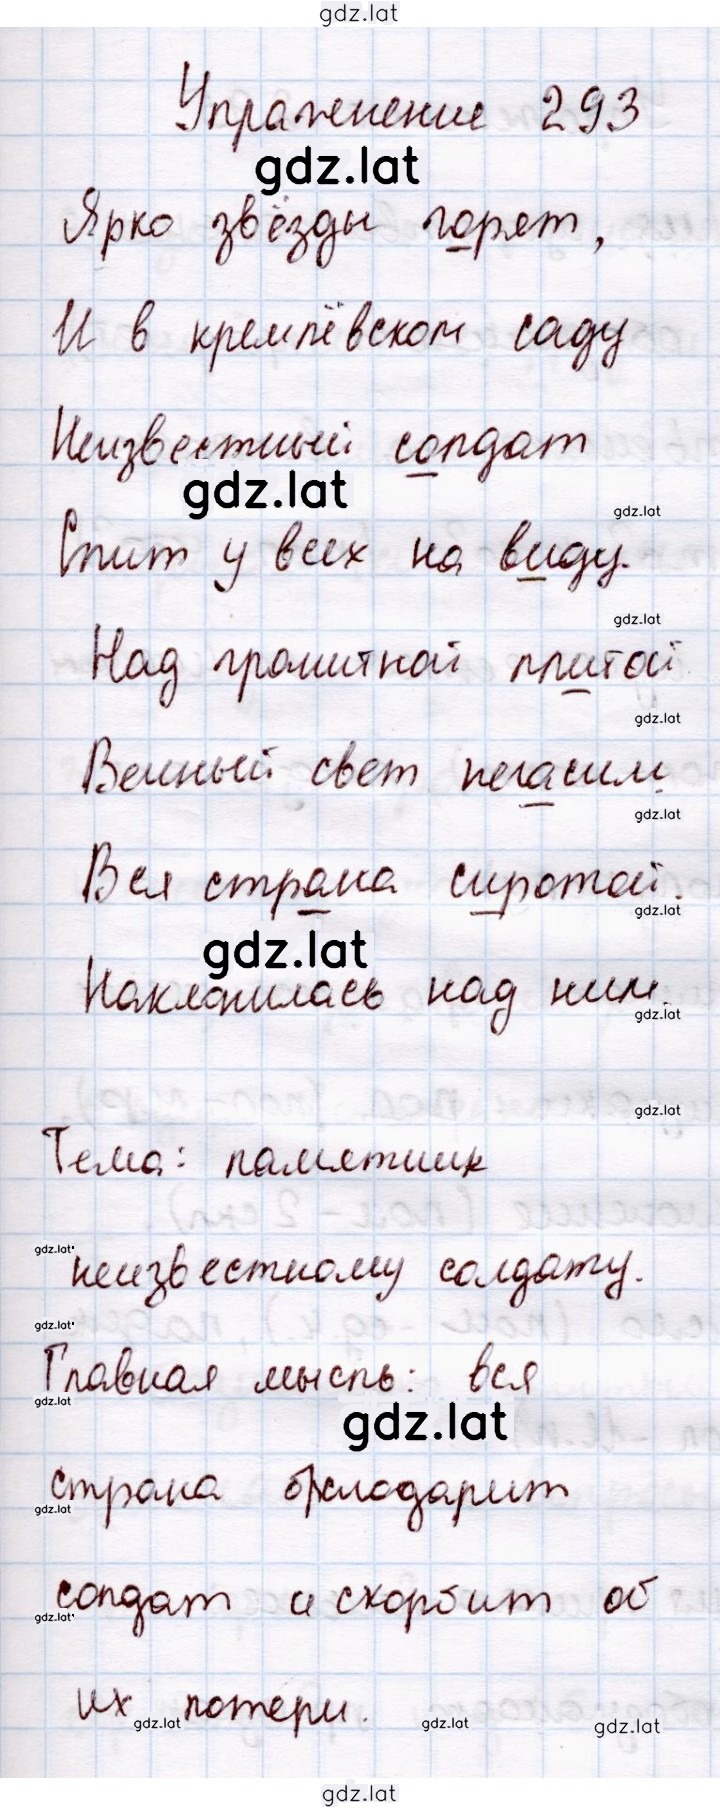 gdz.lat
Упражнение 293
gdz.lat
Ярко звёзды горят,
И в кремлёвском саду
Неизвестный солдат
gdz.lat
gdz.lat
Спит у всех на виду.
gdz.lat
Над гранитной плитой
gdz.lat
Вечный свет негасим.
gdz.lat
Вся страна сиротой.
gdz.lat
gdz.lat
Наклонилась над ним.
gdz.lat
gdz.lat
Тема: памятник
gdz.lat
неизвестному солдату.
gdz.lat
Главная мысль: вся
gdz.lat
gdz.lat
страна благодарит
gdz.lat
солдат и скорбит об
gdz.lat
их потери.
gdz.lat gdz.lat gdz.lat
gdz.lat